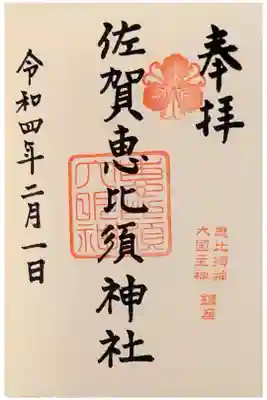 奉拝
佐賀恵比須神社
令和四年二月一日
恵比須神
大国主神
鎮座